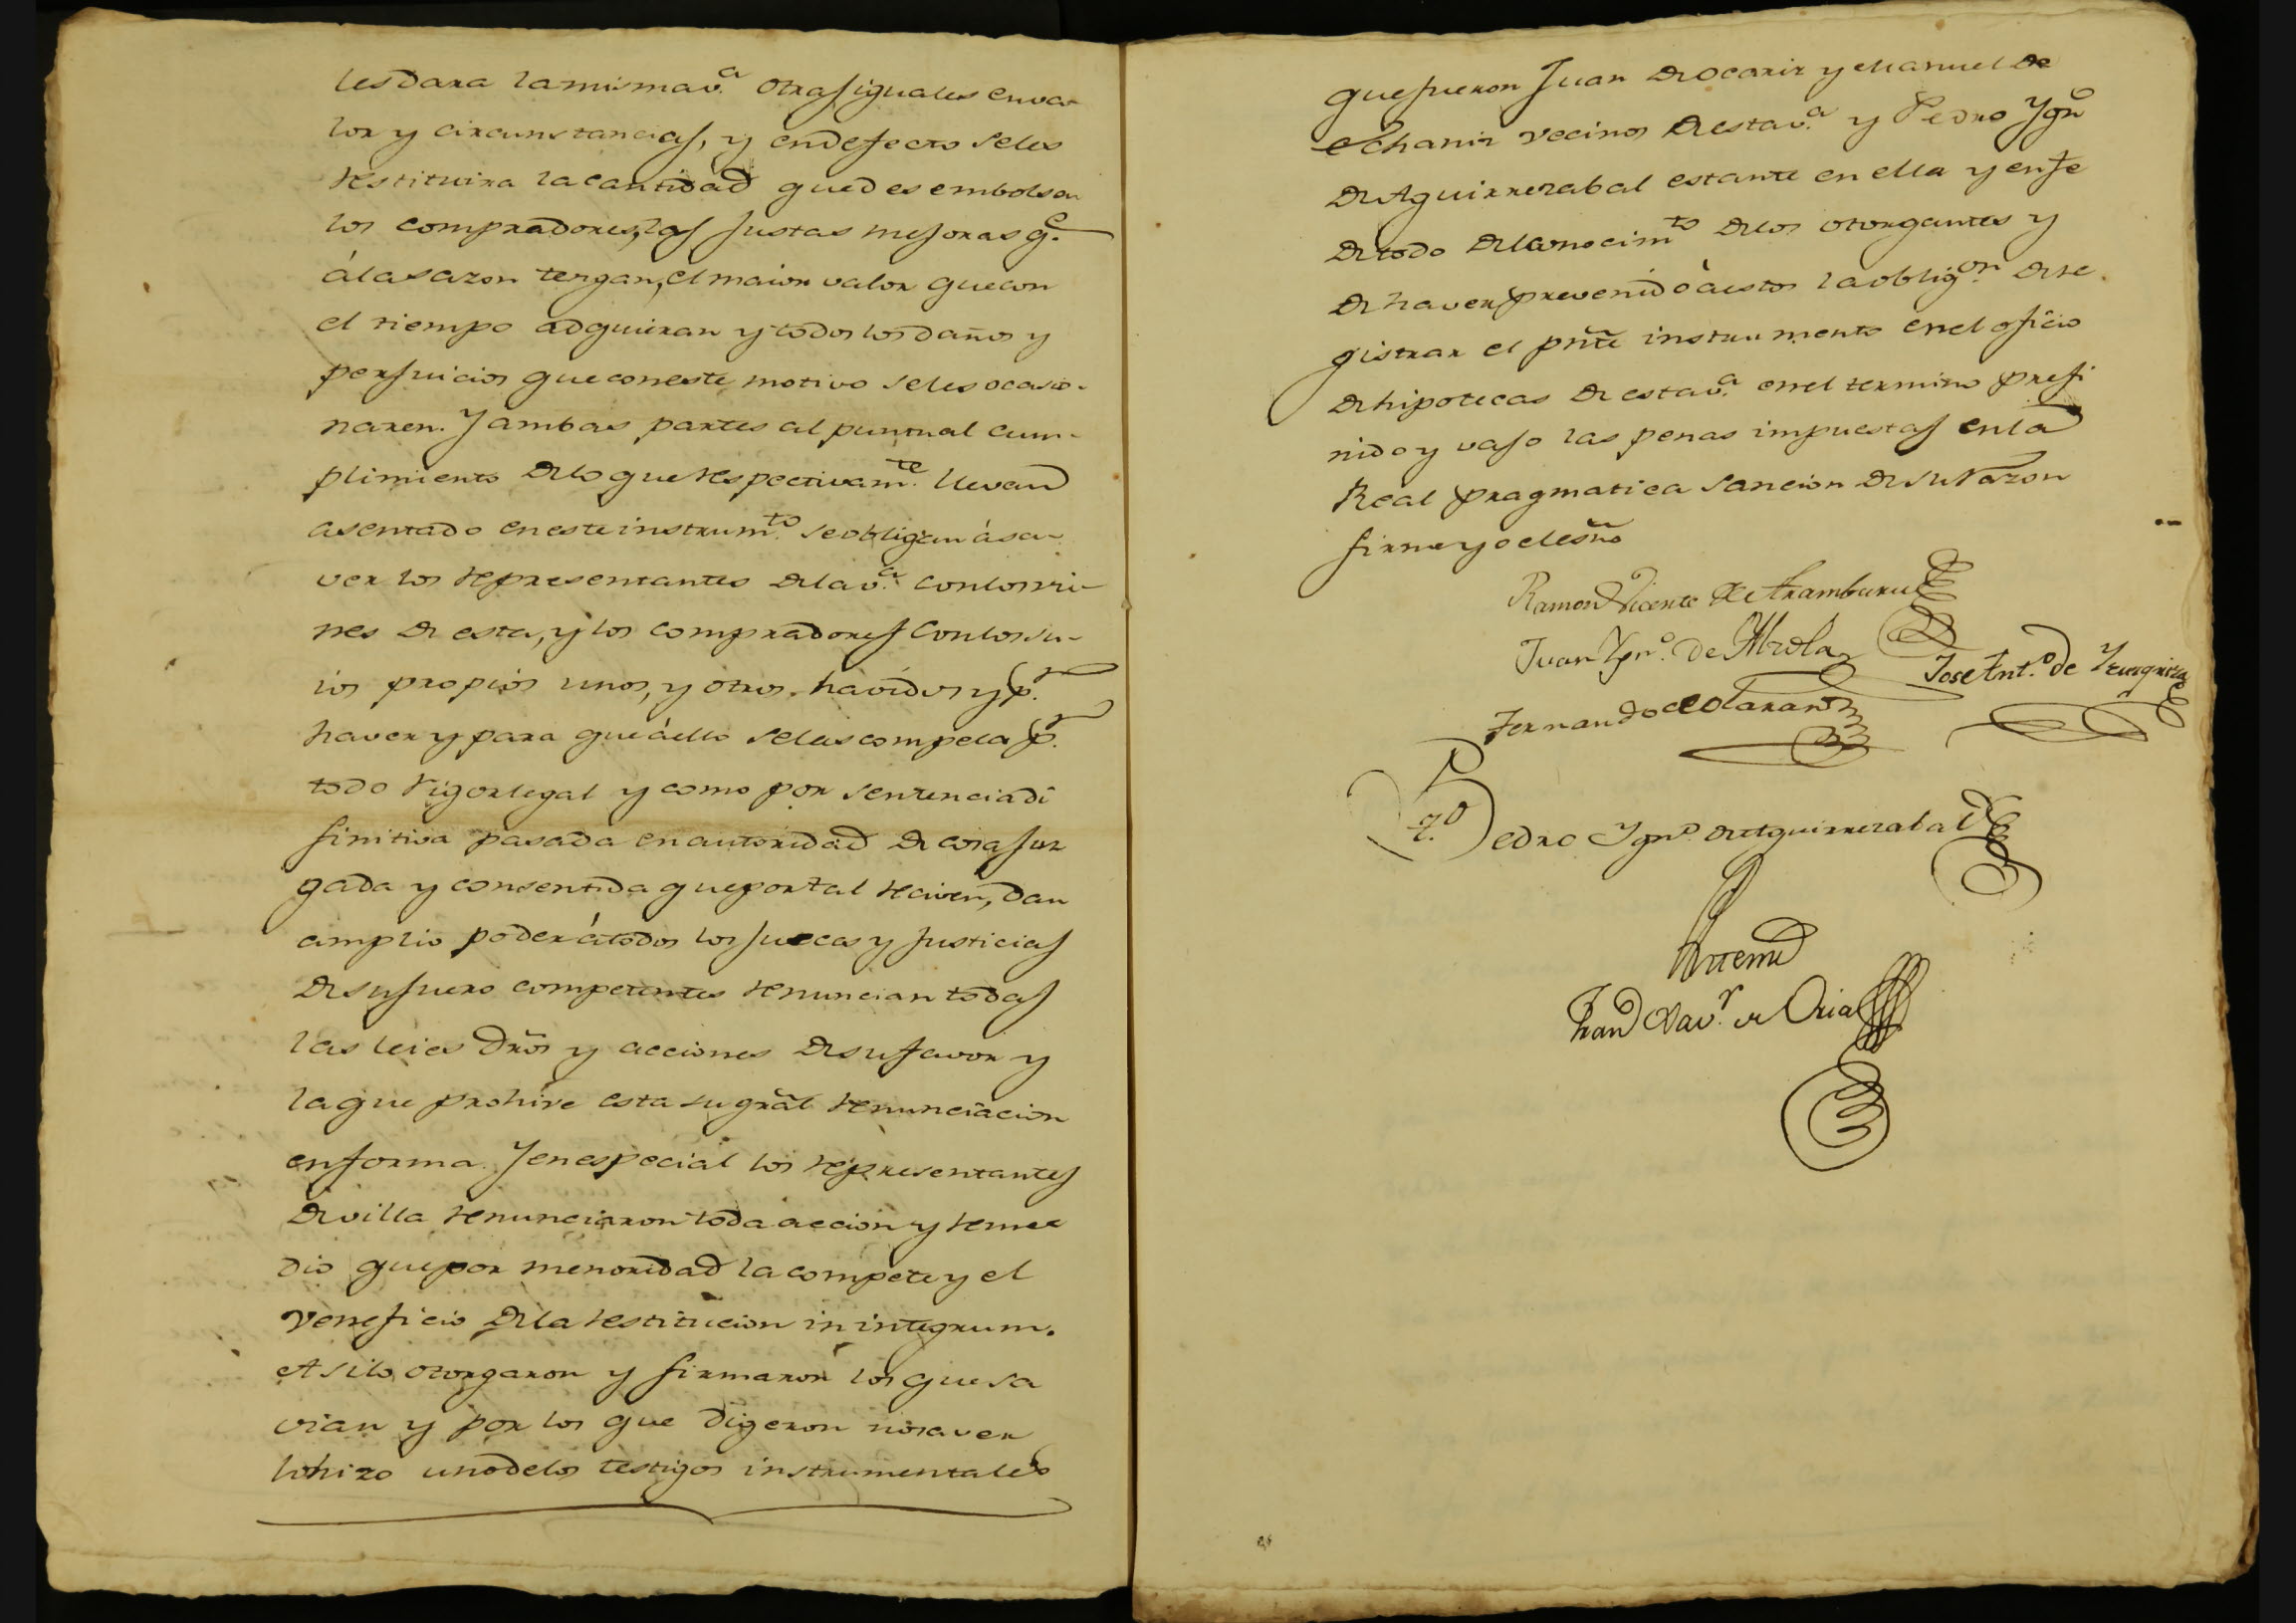 les dara la misma v.ª otras iguales en va-
lor y circunstancias, y en defecto se les
restituira la cantidad que desembolsan
los compradores, las justas mejoras q.e
á la sazon tengan, el maior valor que con
el tiempo adquieran y todos los daños y
perjuicios que con este motivo se les ocasio-
naren. Y ambas partes al puntual cum-
plimiento de lo que respectivam.te llevan
asentado en este instrum.to se obligan á sa-
ver los representantes de la v.ª con los vi-
nes de esta, y los compradores con los su-
ios propios unos, y otros, havidos y p.r
haver y para que á ello se les compela p.r
todo rigor legal y como por sentencia di
finitiva pasada en autoridad de cosa juz
gada y consentida que por tal reciven, dan
amplio poder á todos los jueces y justicias
de su fuero competentes renuncian todas
las leies dr̃os y acciones de su favor y
la que prohive esta su gr̃al renunciacion
en forma. Y en especial los representantes
de villa renunciaron toda accion y reme
dio que por menoridad la compete y el
veneficio de la restitucion in integrum.
Asi lo otorgaron y firmaron los que sa
vian y por los que digeron no saver
lo hizo uno de los testigos instrumentales
que fueron Juan de Ocariz y Manuel de
Echaniz vecinos de esta v.ª y Pedro Ygn.o
de Aguirrezabal estante en ella y en fe
de todo del conocim.to de los otorgantes y
de haver prevenido á estos la oblig.on de re
gistrar el pñte instrumento en el oficio
de hipotecas de esta v.ª en el termino prefi
nido y vajo las penas impuestas en la
Real pragmatica sancion de su razon
firme yo el es̃no
Ramon Vicente de Aramburu
Juan Ygn.o de Alzola
Jose Ant.o de Yeregui
Fernando de Olaran
t.o Pedro Ygn.o de Aguirrezabal
Ante mi
Fran.co Xav.r de Oria